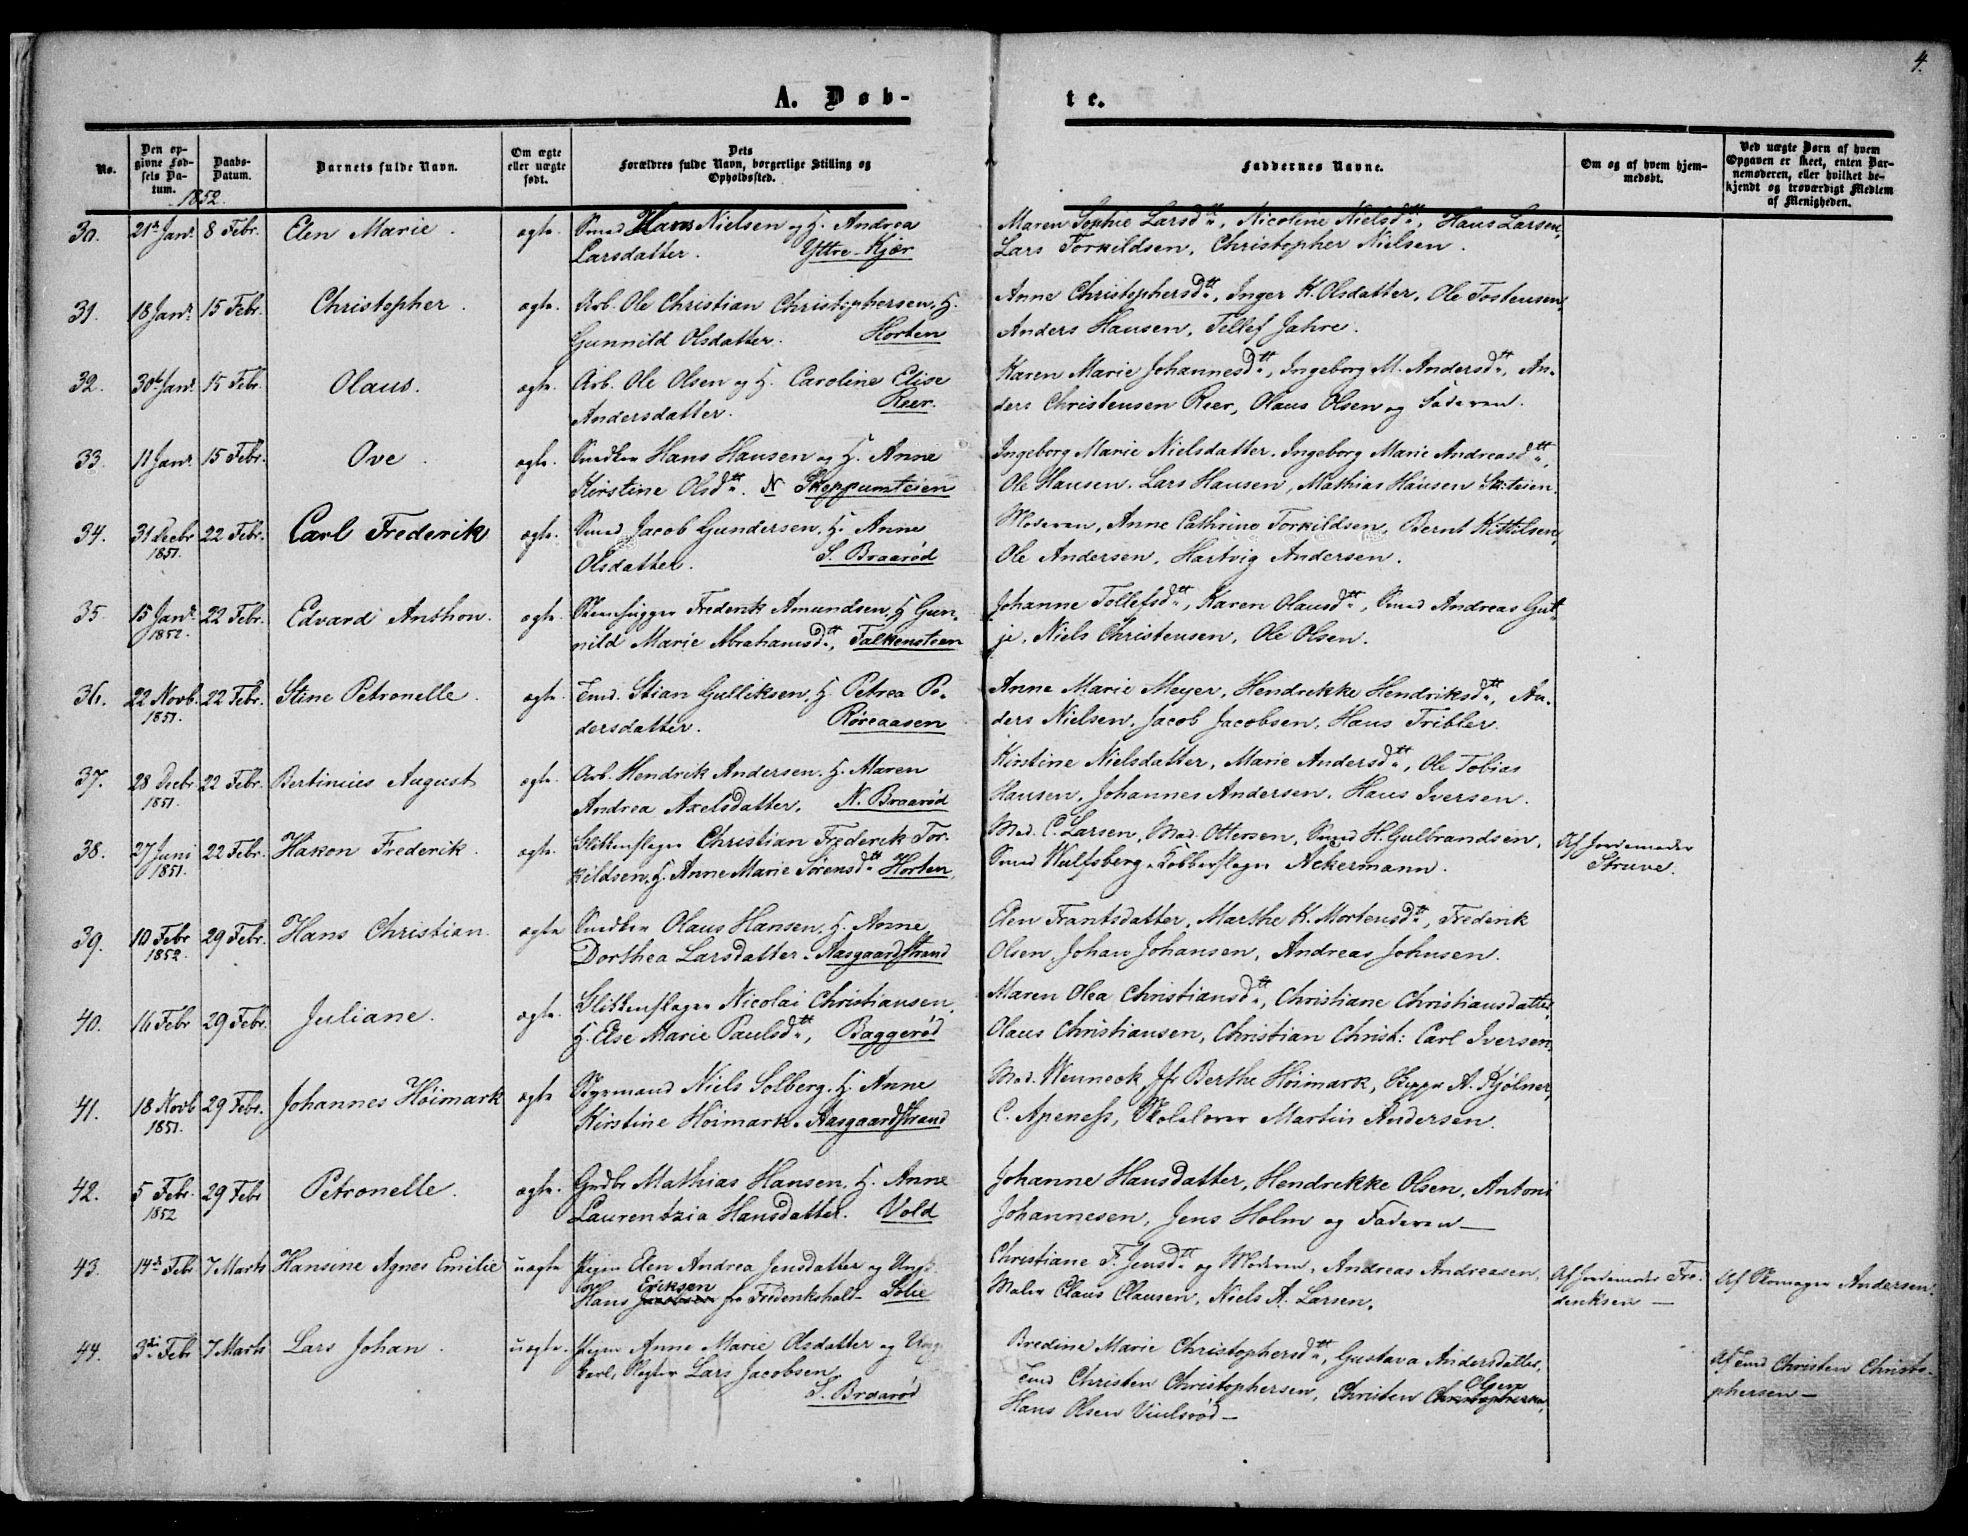 4.
A. Døb-
te.
No.
Den op-
givne Fød-
sels Da-
tum.
Daabs-
Datum.
Barnets fulde Navn.
Om ægte
eller uægte
født.
Dets
Forældres fulde Navn, borgerlige Stilling og
Opholdssted.
Faddernes Navne.
Om og af hvem hjem-
medøbt.
Ved uægte Børn af hvem
Opgaven er skeet, enten Bar-
nemoderen, eller hvilket be-
kjendt og troværdigt Medlem
af Menigheden.
1852.
30. 21de Janr. 8 Febr. Elen Marie. ægte. Smed Hans Nielsen og H. Andrea
Larsdatter. Yttre-Kjær
Maren Sophie Larsdtt., Nicoline Nielsdtt., Hans Larsen,
Lars Torkildsen, Christopher Nielsen.
31. 18 Janr. 15 Febr. Christopher. ægte. Arb. Ole Christian Christophersen, H.
Gunnild Olsdatter. Horten
Anne Christophersdtt., Inger K. Olsdatter, Ole Tostensen,
Anders Hansen, Tellef Jahre.
32. 30te Janr. 15 Febr. Olaus. ægte. Arb. Ole Olsen og H. Caroline Elise
Andersdatter. Reer.
Karen Marie Johannesdtt., Ingeborg M. Andersdtt., An-
ders Christensen Reer, Olaus Olsen og Faderen.
33. 11 Janr. 15 Febr. Ove. ægte. Snedker Hans Hansen og H. Anne
Kirstine Olsdtt. N Skeppumteien
Ingeborg Marie Nielsdatter, Ingeborg Marie Andreasdtt.,
Ole Hansen, Lars Hansen, Mathias Hansen Sk:teien.
34. 31 Decbr 1851. 22 Febr. Carl Frederik ægte. Smed Jacob Gundersen, H. Anne
Olsdatter. S. Braarød
Moderen, Anne Cathrine Torkildsen, Bernt Kittilsen,
Ole Andersen, Hartvig Andersen.
35. 15 Janr. 1852. 22 Febr. Edvard Anthon. ægte. Steenhugger Frederik Amundsen, H. Gun-
nild Marie Abrahamsdtt., Falkensteen
Johanne Tollefsdtt., Karen Olausdtt., Smed Andreas Gut-
je, Niels Christensen, Ole Olsen.
36. 22 Novb. 1851. 22 Febr. Stine Petronelle. ægte. Tmd. Stian Gulliksen, H. Petrea Pe-
dersdatter. Røreaasen
Anne Marie Meyer, Hendrekke Hendriksdtt., An-
ders Nielsen, Jacob Jacobsen, Hans Tribler.
37. 28 Decbr 1851. 22 Febr. Bertinius August ægte. Arb. Hendrik Andersen, H. Maren
Andrea Axelsdatter, N. Braarød
Kirstine Nielsdatter, Marie Andersdtt., Ole Tobias
Hansen, Johannes Andersen, Hans Iversen.
38. 27 Juni 1851. 22 Febr. Hakon Frederik. ægte. Blikkenslager Christian Frederik Tor-
kildsen, H. Anne Marie Sørensdtt. Horten
Mad. C. Larsen, Mad. Ottersen, Smed H. Gulbrandsen,
Smed Wulfsberg, Kobberslager Ackermann.
Af Jordemoder
Struve.
39. 10 Febr 1852. 29 Febr. Hans Christian. ægte Snedker Olaus Hansen, H. Anne
Dorthea Larsdatter. Aasgaardstrand
Elen Frantsdatter, Marthe K. Mortensdtt., Frederik
Olsen, Johan Johansen, Andreas Johnsen.
40. 16 Febr 29 Febr. Juliane. ægte. Blikkenslager Nicolai Christiansen,
H. Else Marie Paulsdtt., Baggerød
Maren Olea Christiansdtt., Christiane Christiansdatter,
Olaus Christiansen, Christian Christ: Carl Iversen.
41. 18 Novb 1851. 29 Febr. Johannes Höimark ægte Styrmand Niels Solberg, H. Anne
Kirstine Höimark. Aasgaardstrand
Mad. Wenneck, Jfr Berthe Höimark, Skipper A. Kjölner,
C. Apeness, Skolelærer Martin Andersen.
42. 5 Febr. 1852 29 Febr Petronelle. ægte. Grdbr Mathias Hansen, H. Anne
Laurentzia Hansdatter. Vold
Johanne Hansdatter, Hendrekke Olsen, Antoni
Johannesen, Jens Holm og Faderen—
43. 14de Febr 7 Marts Hansine Agnes Emilie uægte Pigen Elen Andrea Jensdatter og Ungk.
Eriksen
Hans fra Frederikshald. Solie
Christiane F. Jensdtt. og Moderen, Andreas Andreasen,
Maler Claus Clausen, Niels A. Larsen.
Af Jordemoder Fre-
deriksen—
Af Skomager Andersen.
44. 3die Febr 7 Marts Lars Johan. uægte. Pigen Anne Marie Olsdatter og Ung-
karl, Slagter Lars Jacobsen,
S. Braarød
Bredine Marie Christophersdtt., Gustava Andersdatter,
Olsen
Tmd Christen Christophersen, Christen Christophersen,
Hans Olsen Viulsrød—
Af Tmd Christen Christo-
phersen—